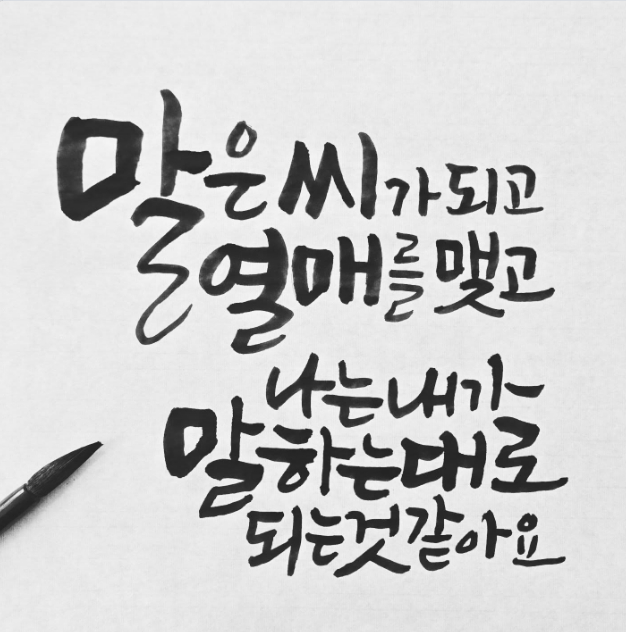 말은 씨가 되고
열매를 맺고
나는 내가
말하는대로
되는것같아요